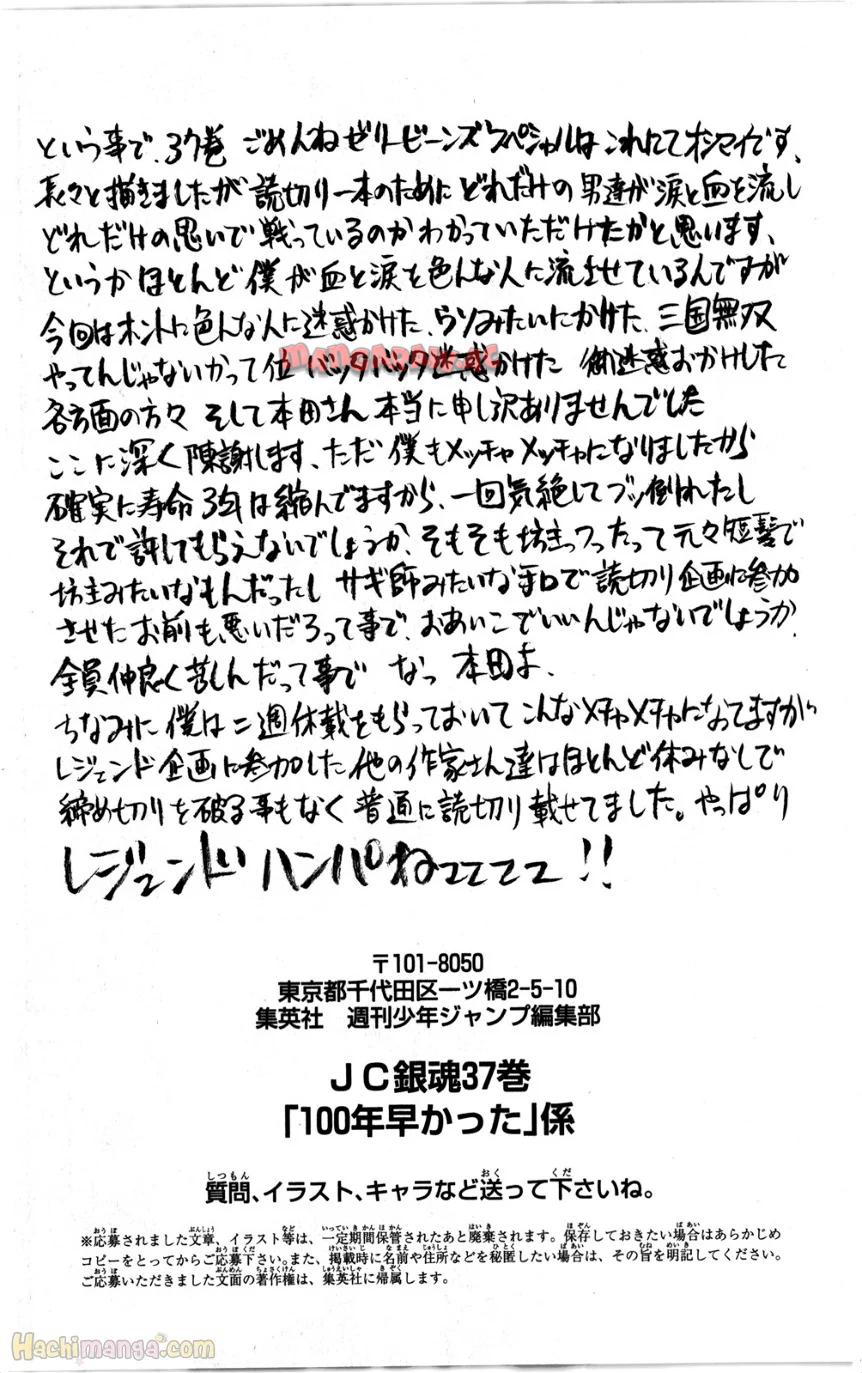 という事で、37巻 ごめんねゼリービーンズスペシャルは これにてオシマイです、
長々と描きましたが読切り一本のために どれだけの男達が涙と血を流し
どれだけの思いで戦っているのかわかっていただけたかと思います、
というかほとんど僕が血と涙を色んな人に流させているんですが
今回はホントに色んな人に迷惑かけた、ウソみたいにかけた、三国無双
やってんじゃないかって位 バッタバッタ迷惑かけた 御迷惑おかけした
MANGARAW.AC
各方面の方々 そして本田さん 本当に申し訳ありませんでした
ここに深く陳謝します、ただ僕もメッチャメッチャになりましたから
確実に寿命3年は縮んでますから、一回気絶してブッ倒れたし
それで許してもらえないでしょうか、そもそも坊主つったって元々短髪で
坊主みたいなもんだったし サギ師みたいな手口で読切り企画に参加
させたお前も悪いだろって事で、おあいこでいいんじゃないでしょうか、
全員仲良く苦しんだって事で なっ 本田よ、
ちなみに僕は二週休載をもらっておいてこんなメチャメチャになってますが
レジェンド企画に参加した他の作家さん達はほとんど休みなしで
締め切りを破る事もなく普通に読切り載せてました。やっぱり
レジェンドハンパねェェェェ!!
〒101-8050
東京都千代田区一ツ橋2-5-10
集英社 週刊少年ジャンプ編集部
JC銀魂37巻
「100年早かった」係
質問、イラスト、キャラなど送って下さいね。
※応募されました文章、イラスト等は、一定期間保管されたあと廃棄されます。保存しておきたい場合はあらかじめ
コピーをとってからご応募下さい。また、掲載時に名前や住所などを秘匿したい場合は、その旨を明記してください。
ご応募いただきました文面の著作権は、集英社に帰属します。
Hachimanga.com